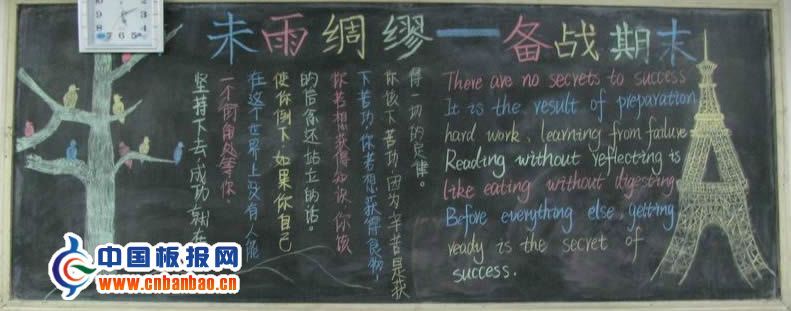 未雨绸缪——备战期末
坚持下去,成功就在
一个街角处等你.
在这个世界上没有人能
使你倒下.如果你自己
的信念还站立的话。
你若想获得知识,你该
下苦功,你若想获得食物,
你该下苦功,因为辛苦是获
得一切的定律。
There are no secrets to success
It is the result of preparation
hard work, learning from failure
Reading without reflecting is
like eating without digesting
Before everything else, getting
ready is the secret of
success.
中国板报网
www.cnbanbao.cn